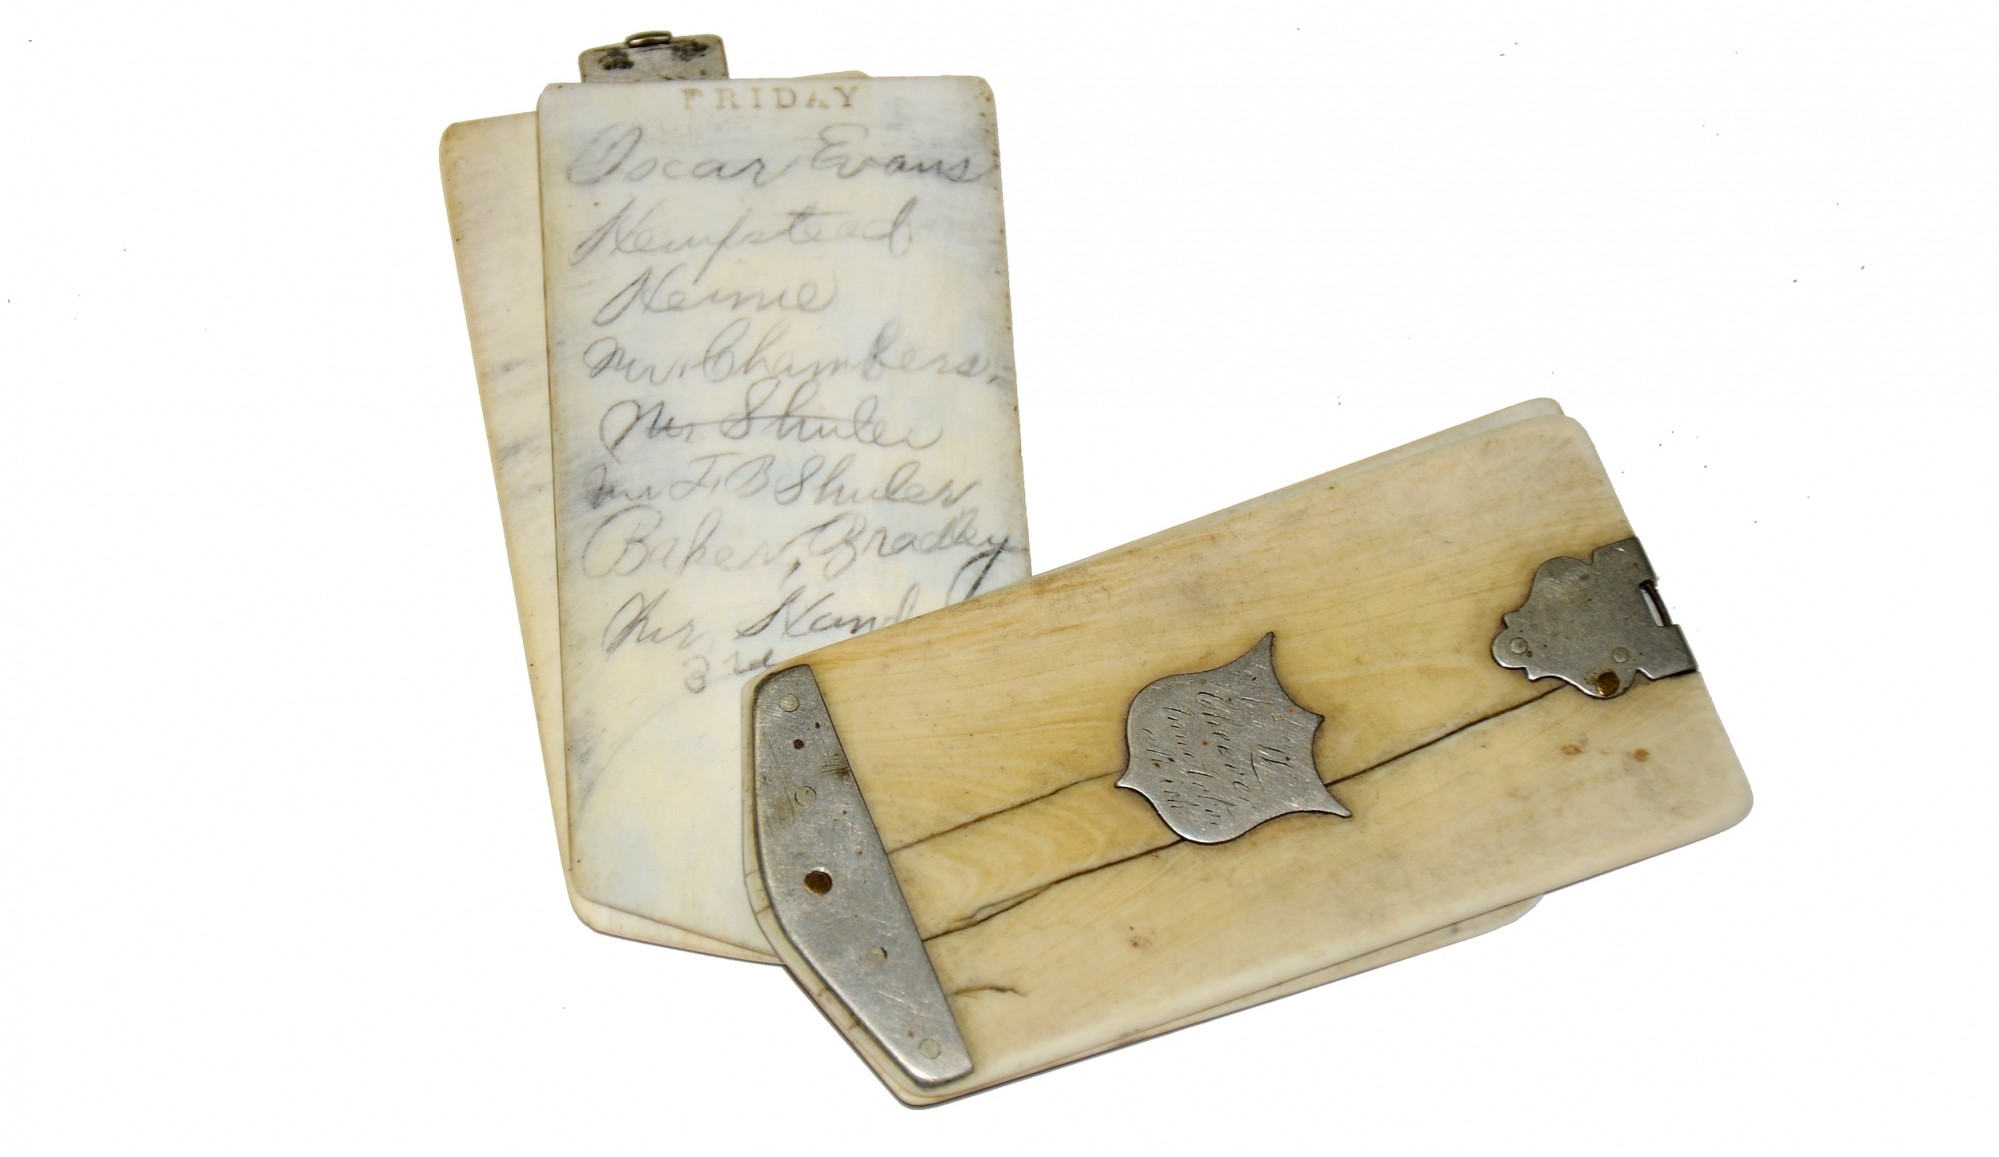 FRIDAY
Oscar Evans
Hempstead
Hennie
Mr. Chambers.
Mr Shuler
Mr F. B Shuler
Baker, Bradley
Mr. Hand
3rd